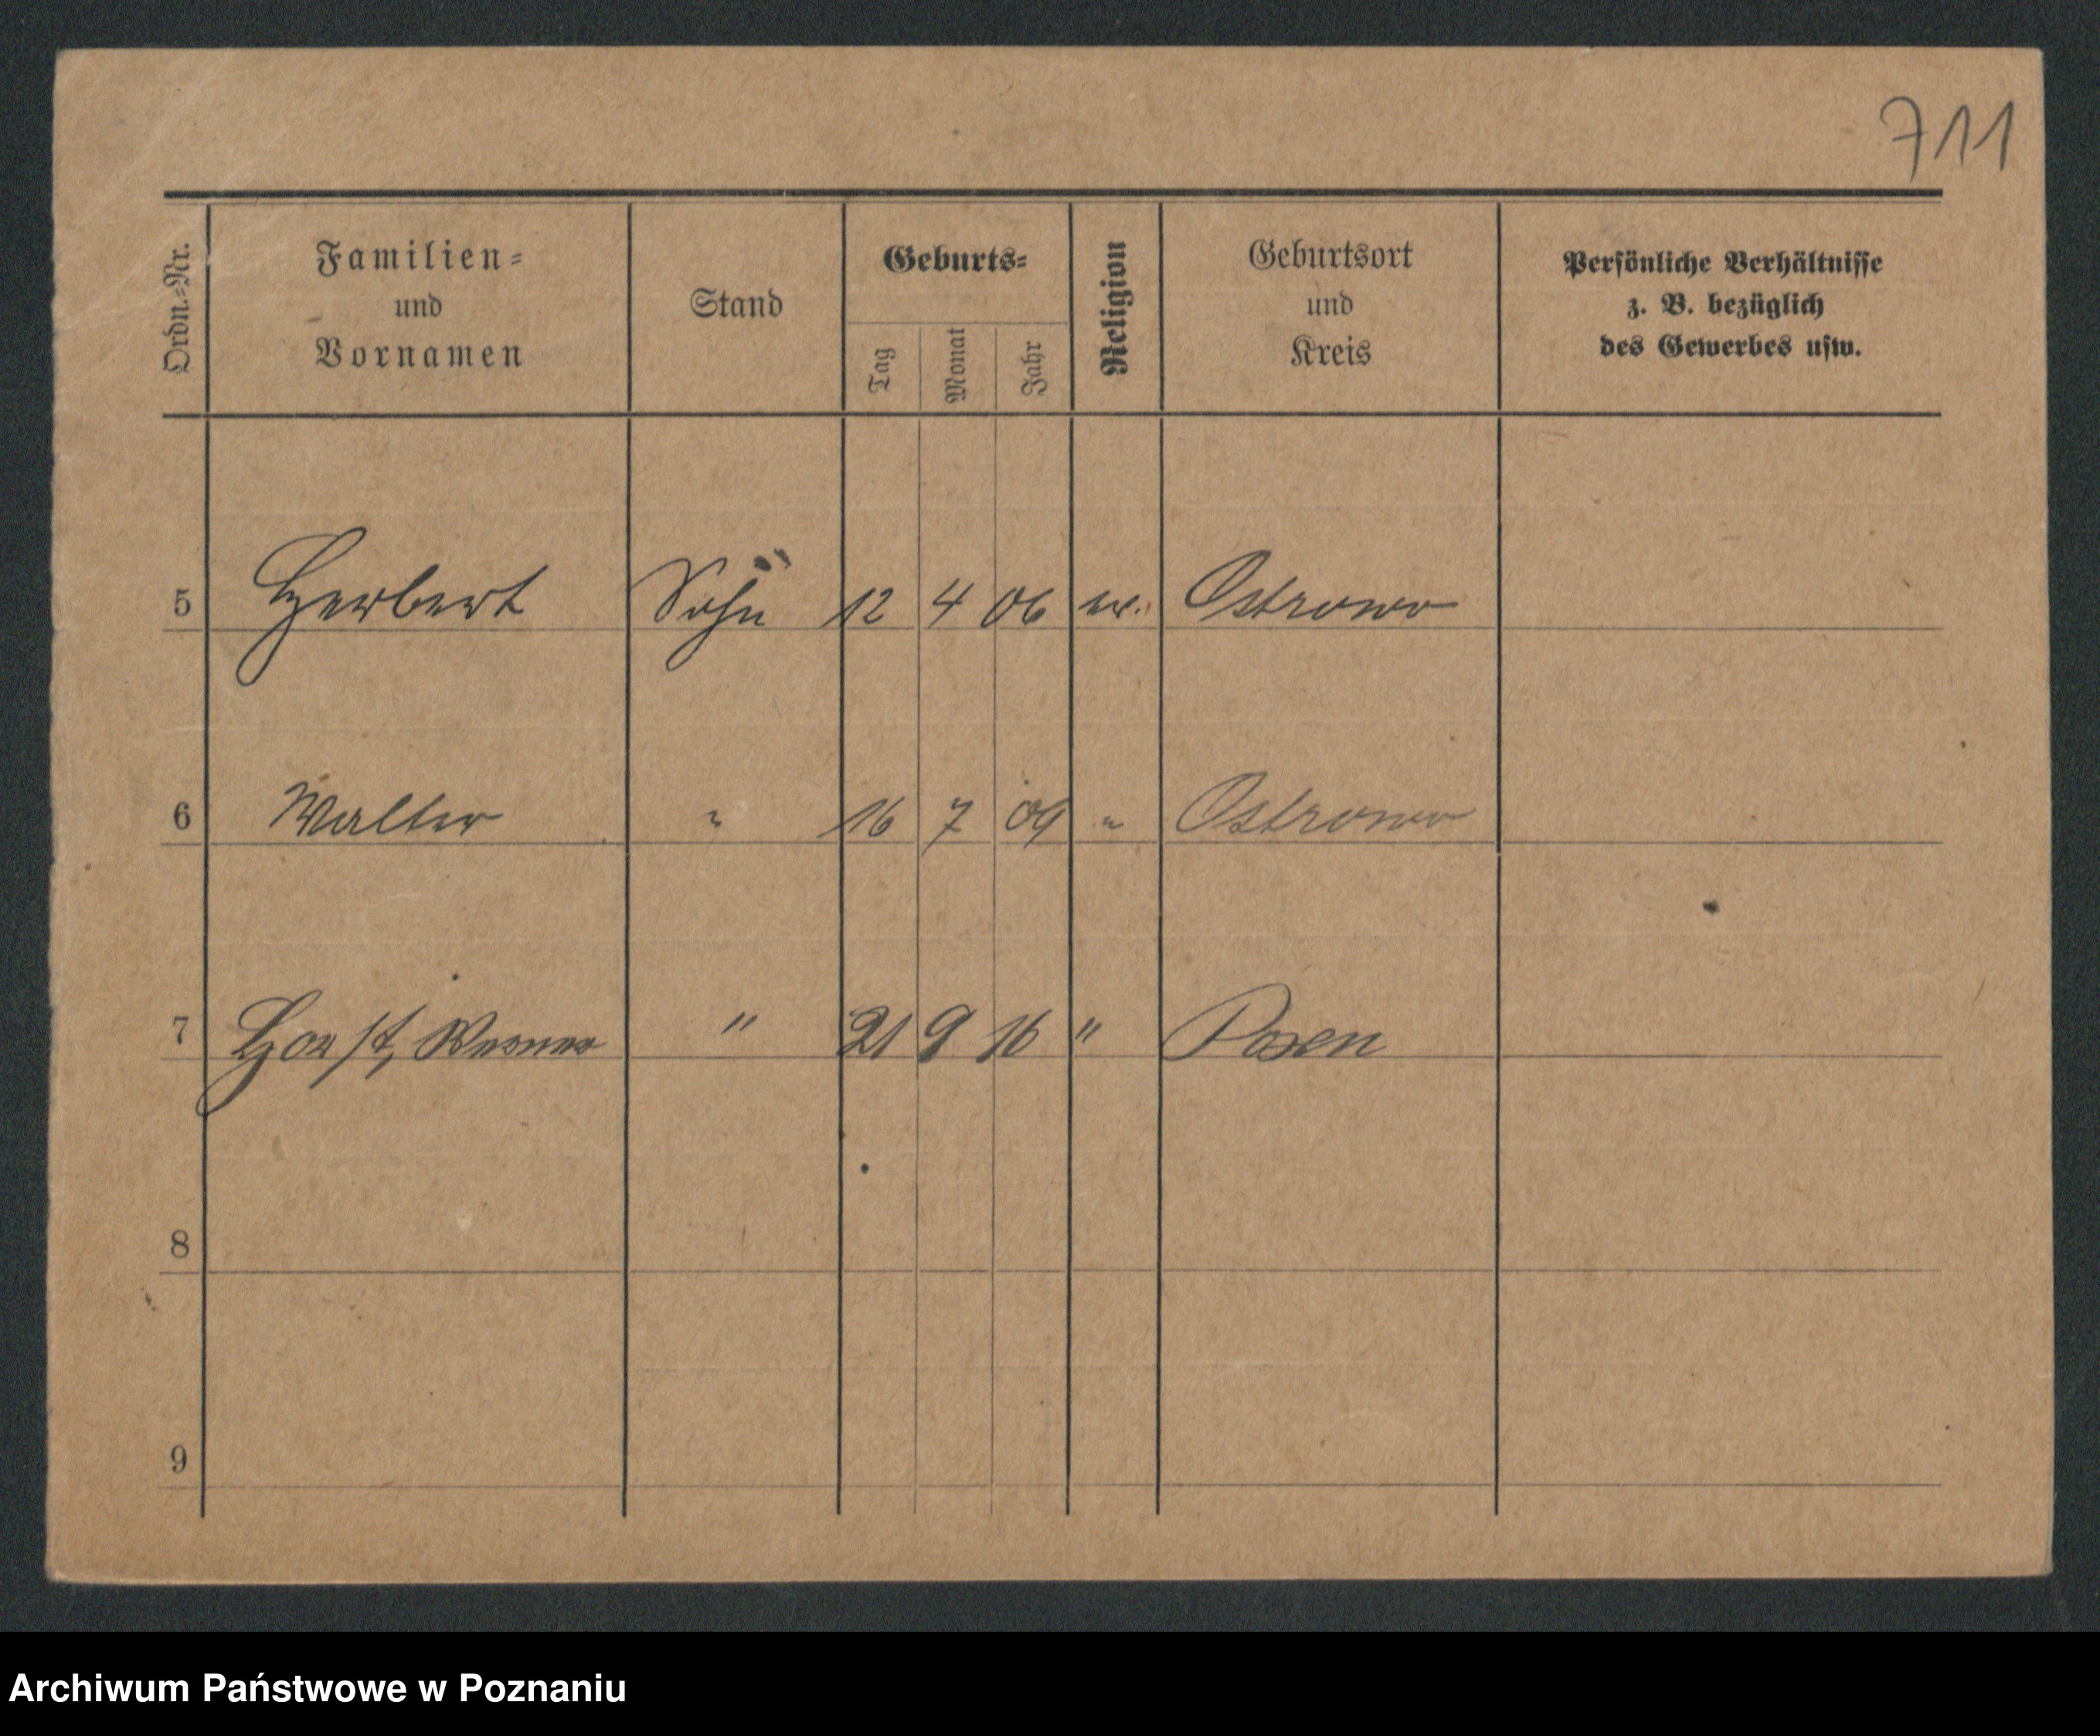 711
Ordn.-Nr.
Familien-
und
Vornamen
Stand
Geburts-
Tag
Monat
Jahr
Religion
Geburtsort
und
Kreis
Persönliche Verhältnisse
z. B. bezüglich
des Gewerbes usw.
5 Herbert Sohn 12 4 06 ev. Ostrowo
6 Walter " 16 7 09 " Ostrowo
7 Horst, Werner " 21 9 16 " Posen
8
9
Archiwum Państwowe w Poznaniu